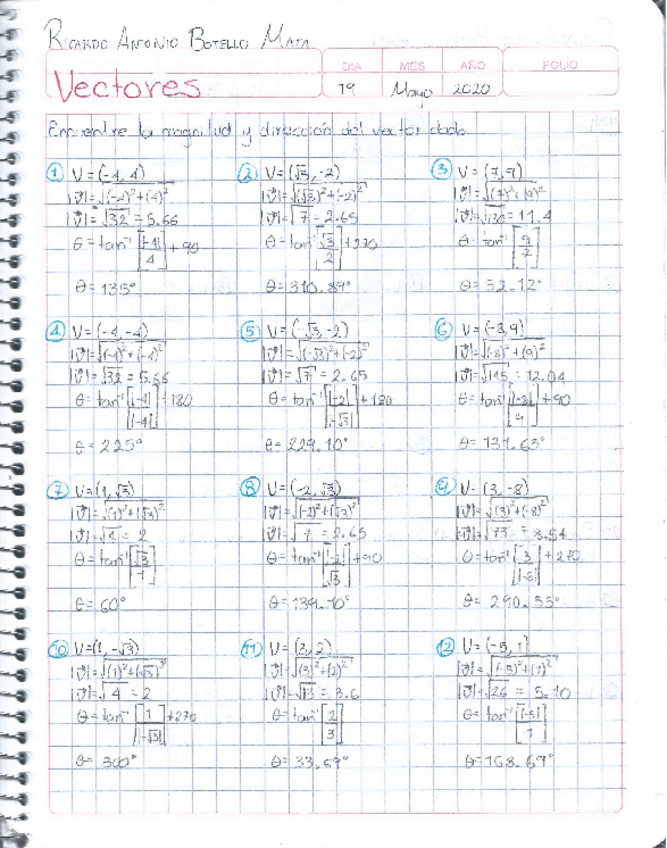 RICARDO ANTONIO BOTELLO MATA
DIA MES AÑO FOLIO
Vectores 19 Mayo 2020
Encuentre la magnitud y dirección del vector dado
① V = (-4, 4)
|v̄| = √(-4)² + (4)²
|v̄| = √32 = 5.66
θ = tan⁻¹ [|-4| / 4] + 90
θ = 135°
② V = (√3, -2)
|v̄| = √(√3)² + (-2)²
|v̄| = √7 = 2.65
θ = tan⁻¹ [√3 / 2] + 270
θ = 310.89°
③ V = (7, 9)
|v̄| = √(7)² + (9)²
|v̄| = √130 = 11.4
θ = tan⁻¹ [9 / 7]
θ = 52.12°
④ V = (-4, -4)
|v̄| = √(-4)² + (-4)²
|v̄| = √32 = 5.66
θ = tan⁻¹ [|-4| / |-4|] + 180
θ = 225°
⑤ V = (-√3, -2)
|v̄| = √(-√3)² + (-2)²
|v̄| = √7 = 2.65
θ = tan⁻¹ [|-2| / |-√3|] + 180
θ = 229.10°
⑥ V = (-8, 9)
|v̄| = √(-8)² + (9)²
|v̄| = √145 = 12.04
θ = tan⁻¹ [|-8| / 9] + 90
θ = 131.63°
⑦ V = (1, √3)
|v̄| = √(1)² + (√3)²
|v̄| = √4 = 2
θ = tan⁻¹ [√3 / 1]
θ = 60°
⑧ V = (-2, √3)
|v̄| = √(-2)² + (√3)²
|v̄| = √7 = 2.65
θ = tan⁻¹ [|-2| / √3] + 90
θ = 139.10°
⑨ V = (3, -8)
|v̄| = √(3)² + (-8)²
|v̄| = √73 = 8.54
θ = tan⁻¹ [3 / |-8|] + 270
θ = 290.55°
⑩ V = (1, -√3)
|v̄| = √(1)² + (√3)²
|v̄| = √4 = 2
θ = tan⁻¹ [1 / |-√3|] + 270
θ = 300°
⑪ V = (3, 2)
|v̄| = √(3)² + (2)²
|v̄| = √13 = 3.6
θ = tan⁻¹ [2 / 3]
θ = 33.69°
⑫ V = (-5, 1)
|v̄| = √(-5)² + (1)²
|v̄| = √26 = 5.10
θ = tan⁻¹ [|-5| / 1]
θ = 168.69°